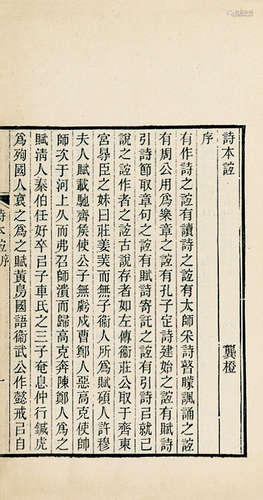 詩本誼
序
龔橙
有作詩之誼有讀詩之誼有太師采詩瞽矇諷誦之誼
有周公用爲樂章之誼有孔子定詩建始之誼有賦詩
引詩節取章句之誼有賦詩寄託之誼有引詩㠯就己
說之誼作者之誼古說存者如左傳衞莊公取于齊東
宮㝵臣之妹曰莊姜美而無子衞人所爲賦碩人許穆
夫人賦載馳齊矦使公子無虧戍曹鄭人惡高克使帥
師次于河上久而弗召師潰而歸高克奔陳鄭人爲之
賦清人秦伯任好卒㠯子車氏之三子奄息仲行鍼虎
爲殉國人哀之爲之賦黃鳥國語衞武公作懿戒㠯自
詩本誼序
一